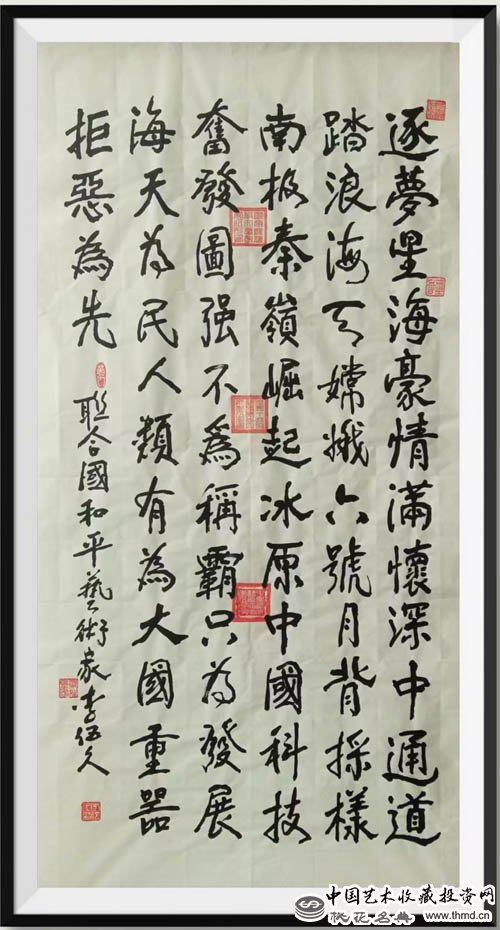 逐夢星海豪情滿懷深中通道
踏浪海天嫦娥六號月背採樣
南极秦嶺崛起冰原中國科技
奮發圖强不為稱霸只为發展
海天为民人類有為大國重器
拒惡為先
聯合國和平藝術家李伍久
中国艺术收藏投资网
桃花名典
www.thmd.cn